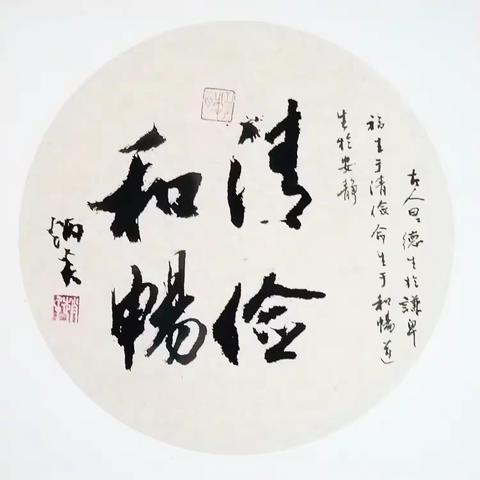 古人曰德生於謙卑
福生于清俭命生于和暢道
生於安静
清俭
和暢